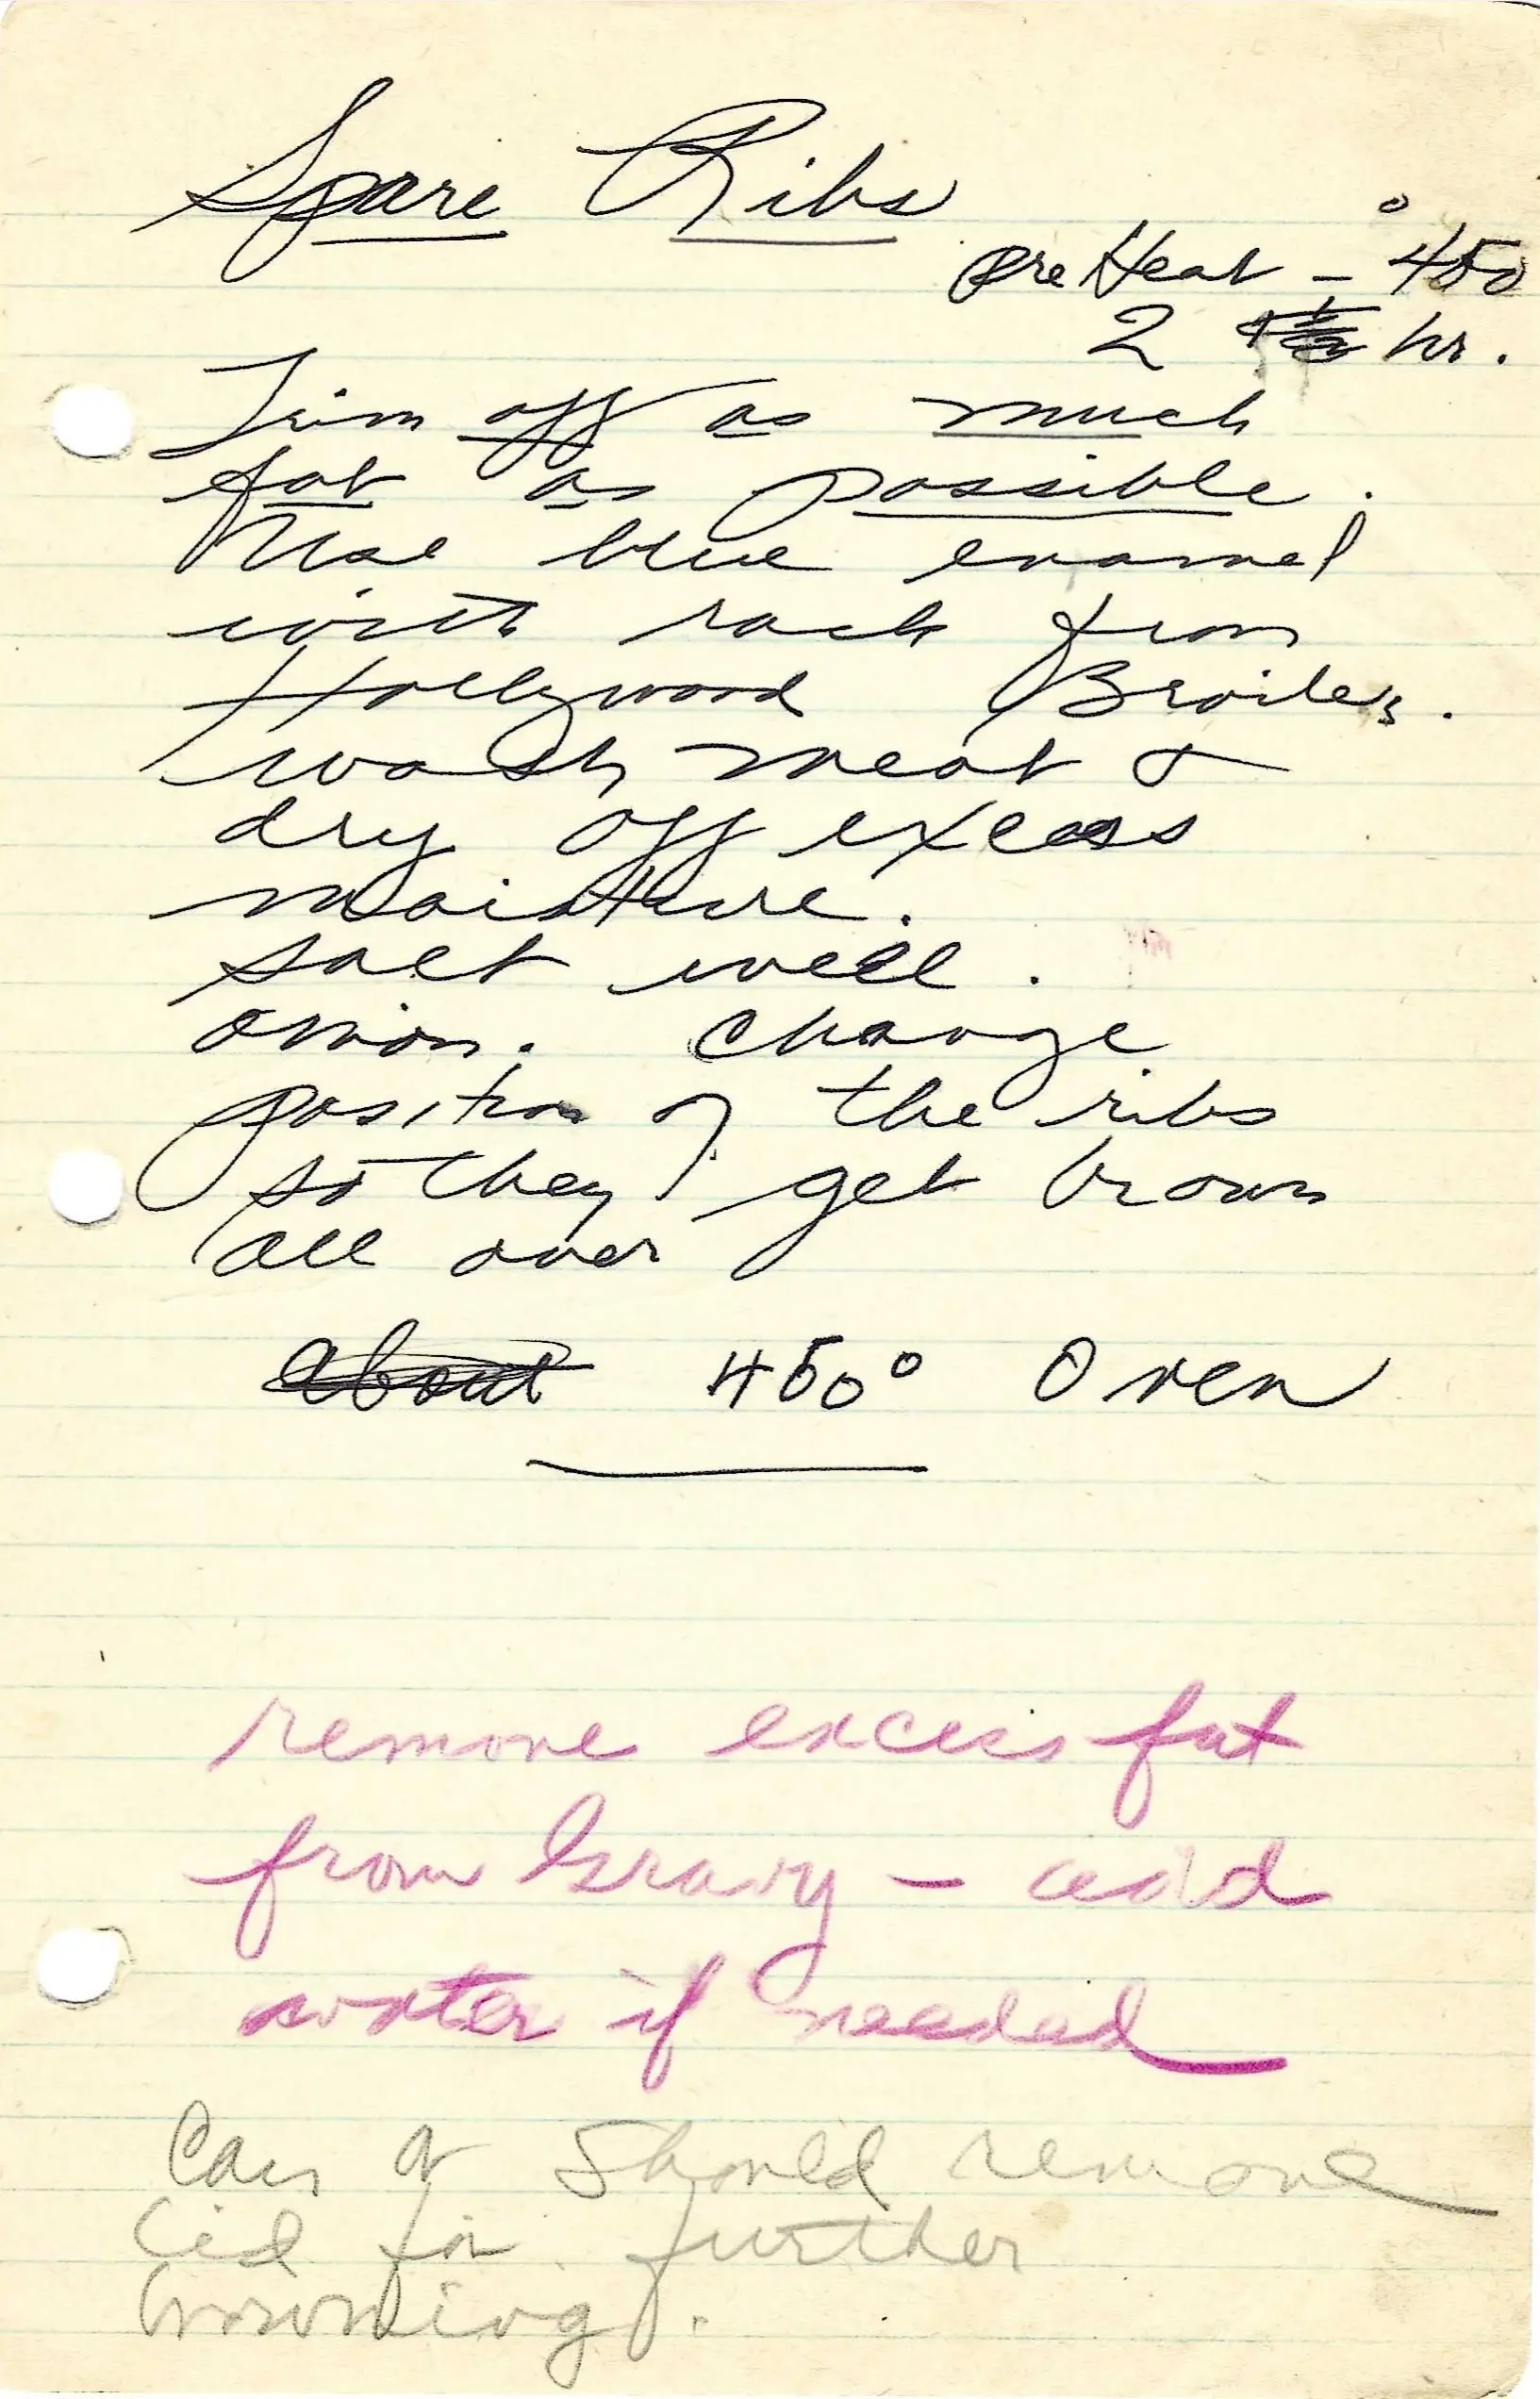 Spare Ribs
pre Heat - 450°
2 hr.
Trim off as much
fat as possible.
Use blue enamel
with rack from
Hollywood Broiler.
wash meat &
dry off excess
moisture.
salt well.
onion. Change
position of the ribs
so they get brown
all over
about 450° Oven
remove excess fat
from Gravy - add
water if needed
Can or should remove
lid for further
browning.